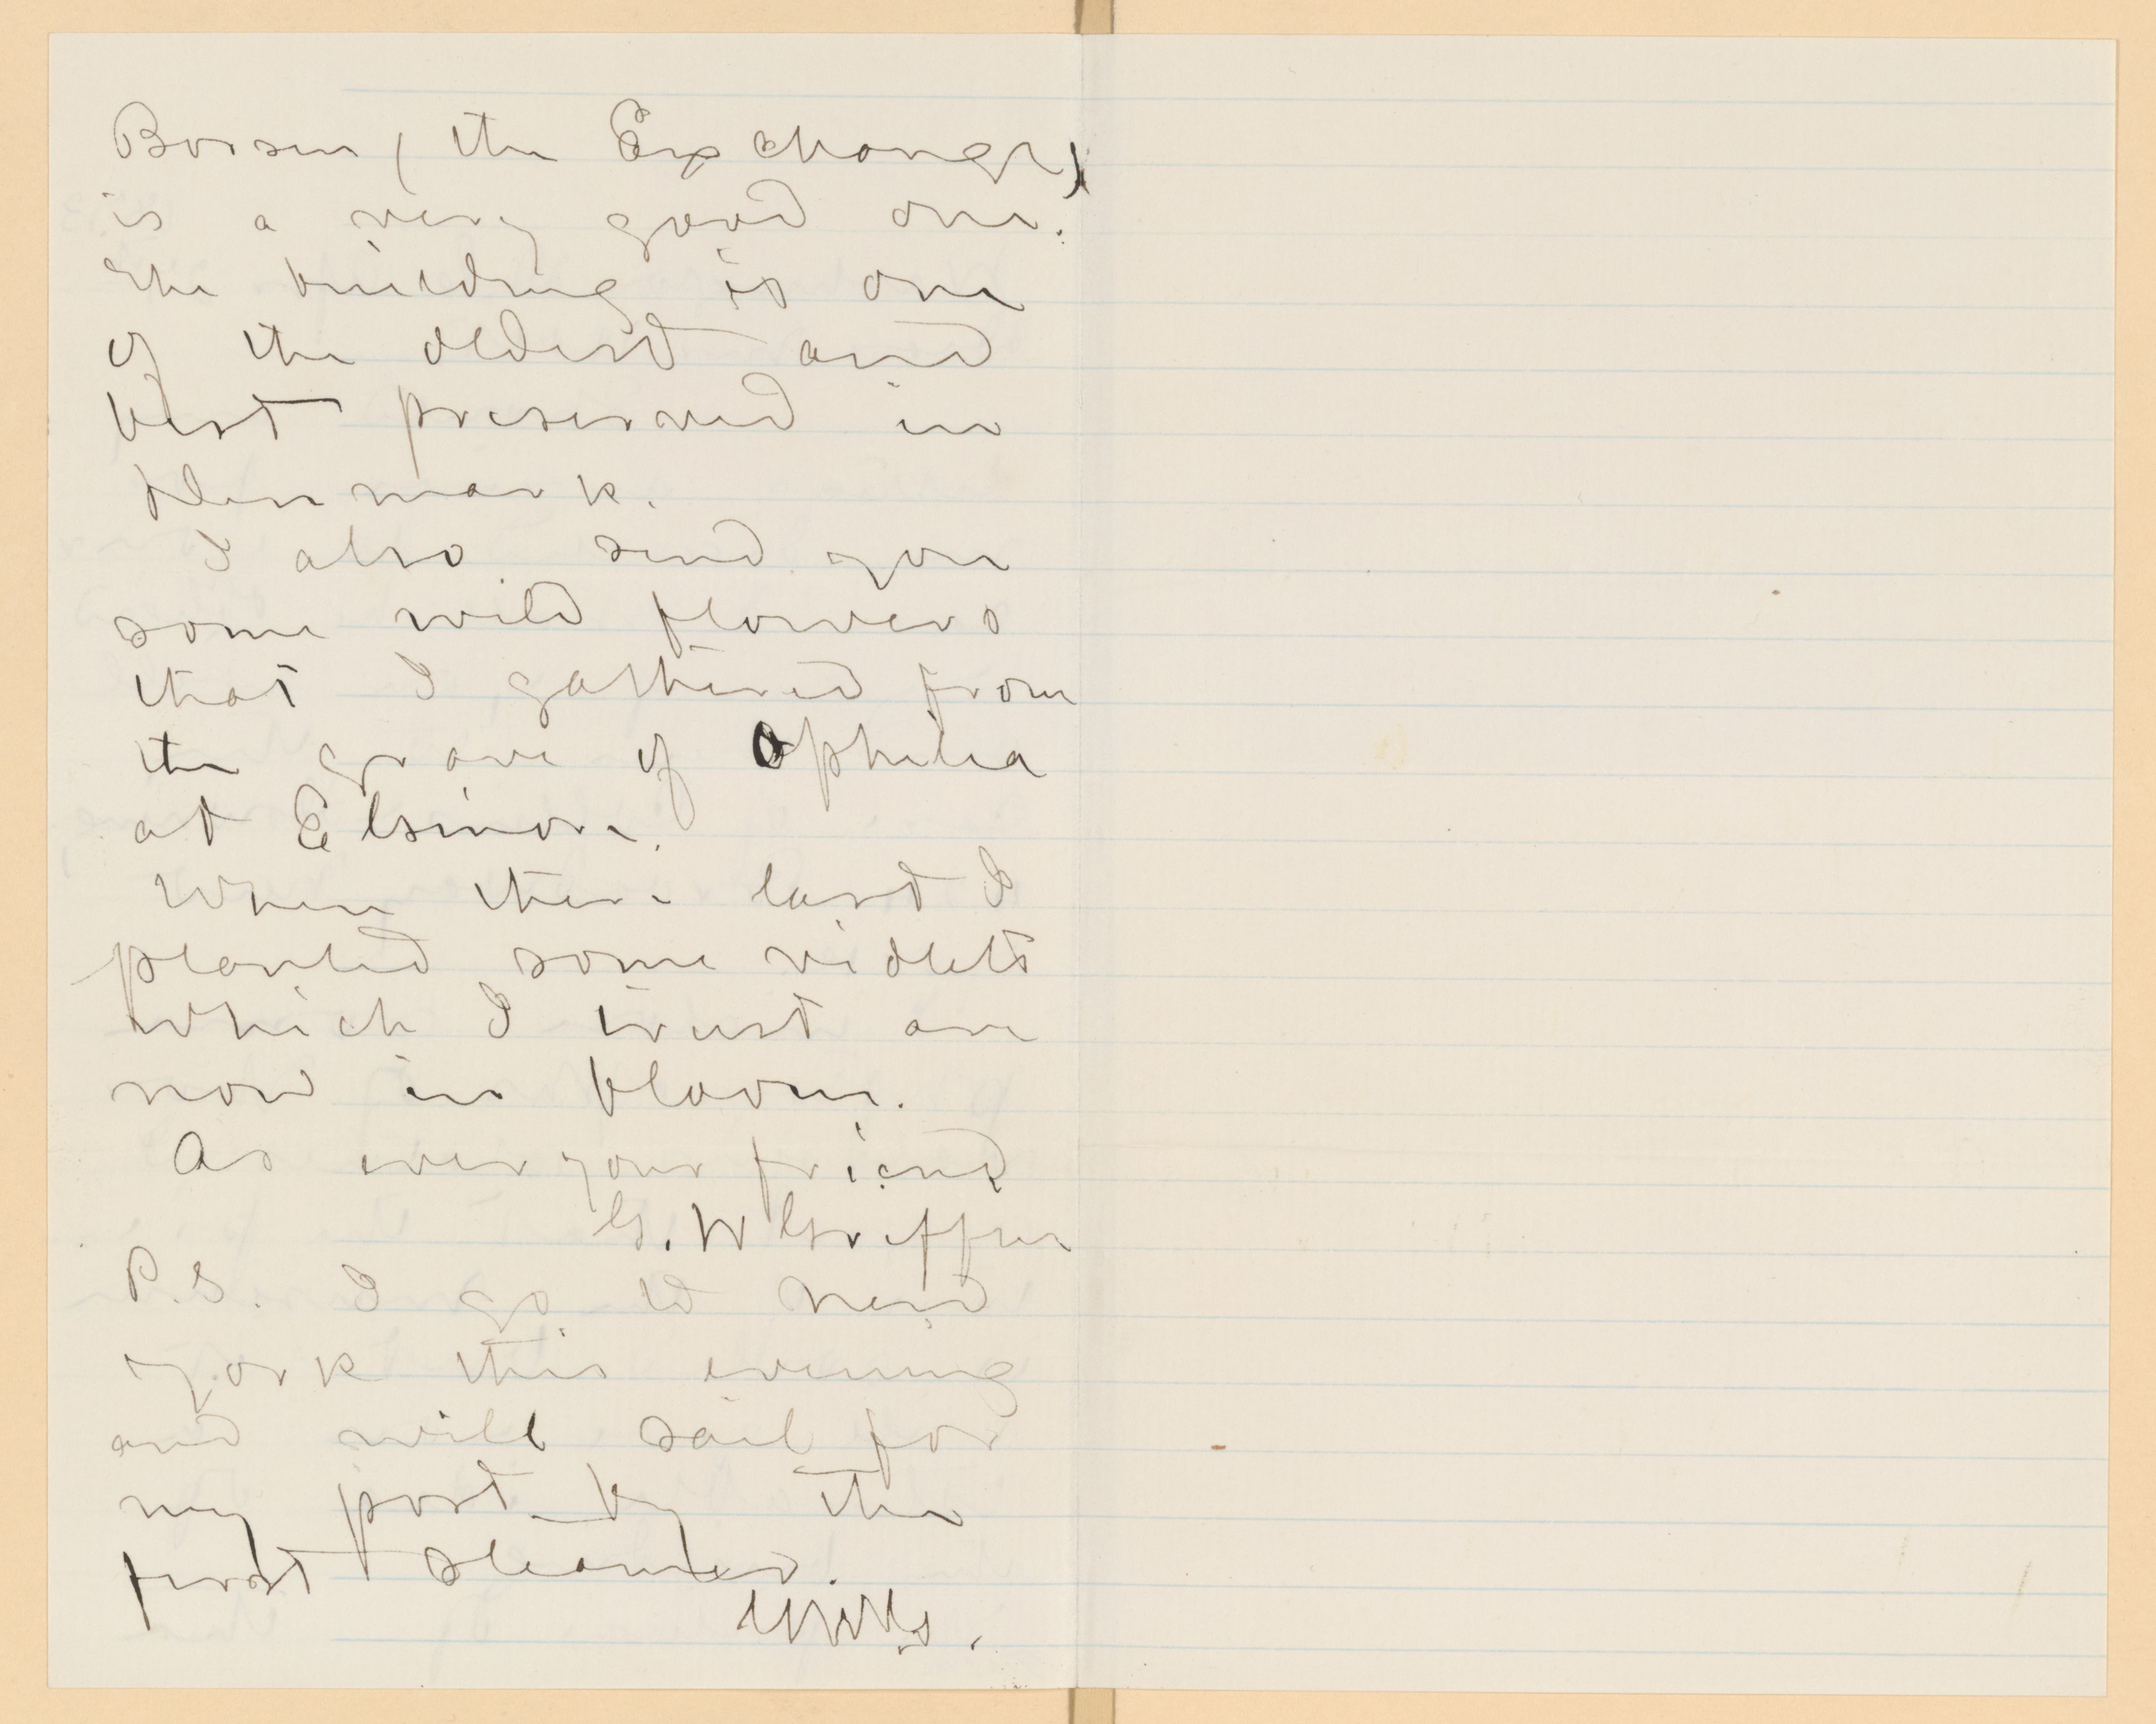 Borsen (the Exchange)
is a very good one.
The building is one
of the oldest and
best preserved in
Denmark.
I also send you
some wild flowers
that I gathered from
the grave of Ophelia
at Elsinore.
When there last I
planted some violets
which I trust are
now in bloom.
As ever your friend
G. W Griffin
P.S. I go to New
York this evening
and will sail for
my post by the
first steamer.